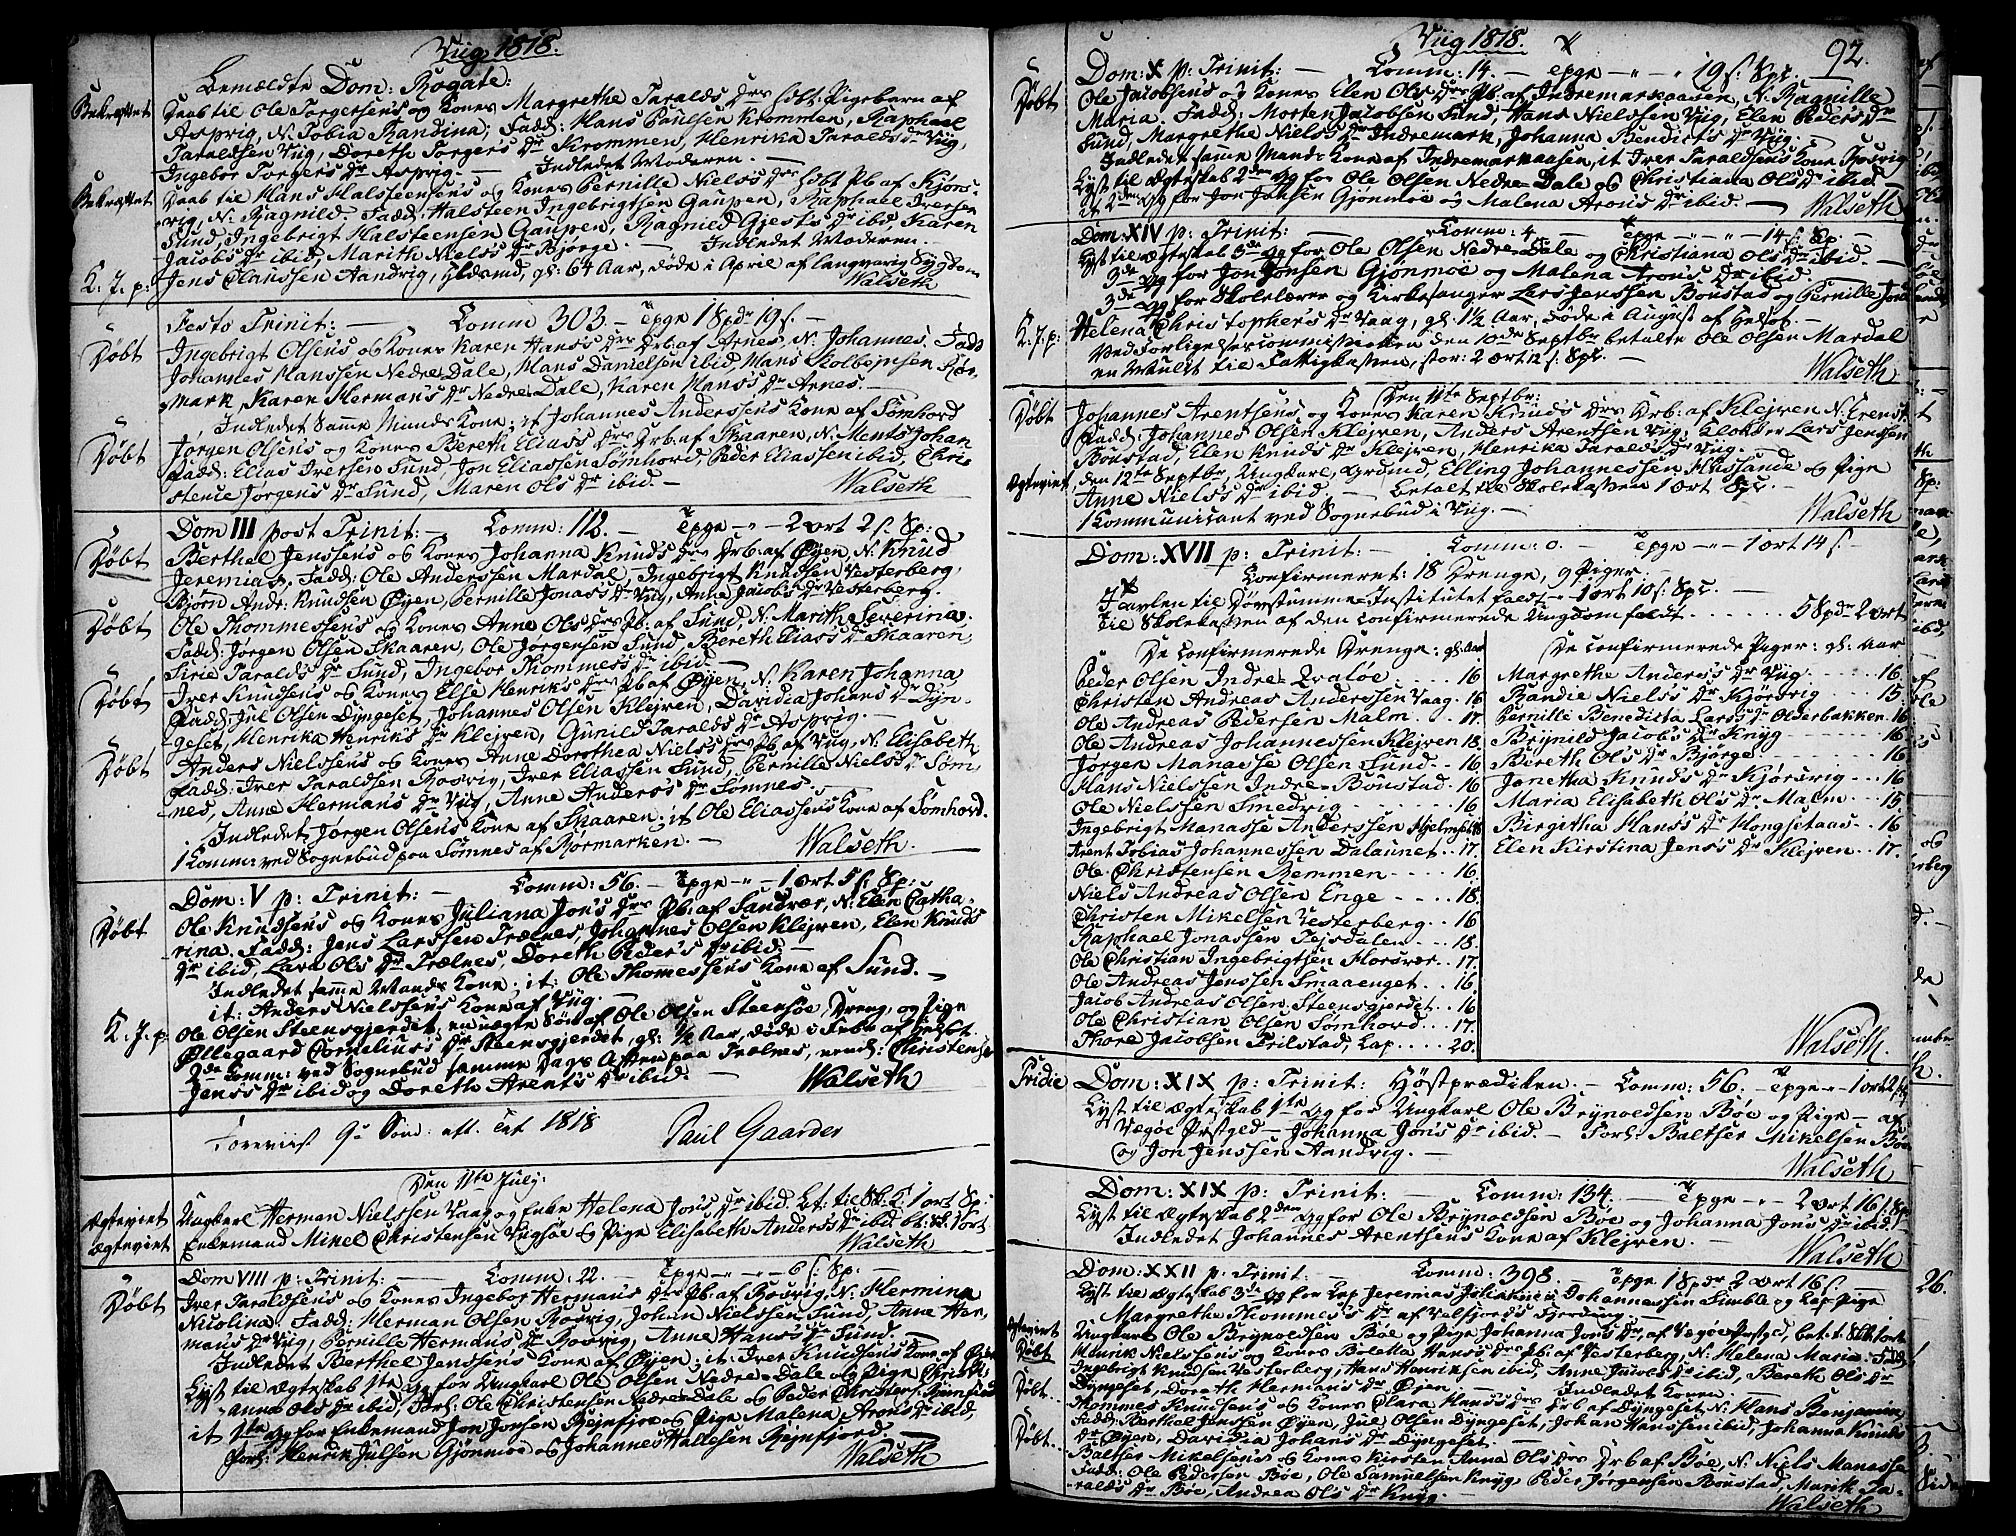 Viig 1818.
Bemældte Dom: Rogate:
Bekræftet Daab til Ole Torgersens og Kones Margrethe Taralds Drs hbt: Pigebarn af
Aspvig, N. Tobia Bandina; Fadd: Hans Paulsen Krommen, Raphael
Taraldsen Viig, Doreth Torgers Dr Krommen, Henrika Taralds Dr Viig,
Ingebor Torgers Dr Aspvig. — Indledet Moderen. —
Bekræftet Daab til Hans Halsteensens og Kones Pernille Niels's Drs hbt Pb. af Kjørs-
vig, N. Ragnild. Fadd: Halsteen Ingebrigtsen Gaupen, Raphael Iversen
Sund, Ingebrigt Halsteensen Gaupen, Ragnild Gjerts Dr ibid, Karen
Jacobs Dr ibid, Marith Niels's Dr Bjørge. — Indledet Moderen. —
K. J. p: Jens Claussen Aandvig, Huusmd, gl: 64 Aar, døde i April af langvarig Sygdom
Walseth
Festo Trinit: — Comm 303. — Tpge 1 Spdr 19 s. —
Døbt Ingebrigt Olsens og Kones Karen Hans's Drs Drb. af Arnes, N. Johannes. Fadd
Johannes Hanssen Nedre Dale, Hans Danielsen ibid, Hans Kolbejnsen Rør-
mark, Karen Hermans Dr Nedre Dale, Karen Hans's Dr Arnes. —
Indledet Samme Mands Kone; it Johannes Anderssens Kone af Sømhord
Døbt Jørgen Olsens og Kones Bereth Elias's Drs Drb. af Skaaren, N. Ments Johan
Fadd: Elias Iversen Sund, Jon Eliassen Sømhord, Peder Eliassen ibid, Chri-
stence Jørgens Dr Sund, Maren Ols Dr ibid. — Walseth
Dom III post Trinit: — Comm: 112. — Tpge -"- 2 ort 2 s. Sp:
Døbt Berthel Jenssens og Kones Johanna Knuds Drs Drb. af Øyen, N. Knud
Jeremias. Fadd: Ole Anderssen Mardal, Ingebrigt Knudsen Vesterberg,
Bjørn Andr: Knudsen Øyen, Pernille Jonas's Dr Viig, Anne Jacobs Dr Vesterberg.
Døbt Ole Thommessens og Kones Anne Ols Drs Pb: af Sund, N. Marith Severina.
Fadd: Jørgen Olsen Skaaren, Ole Jørgensen Sund, Bereth Elias's Dr Skaaren,
Sirie Taralds Dr Sund, Ingebor Thommes's Dr ibid. —
Døbt Iver Knudsens og Kones Else Henriks Drs Pb af Øyen, N. Karen Johanna
Fadd: Jul Olsen Dyngeset, Johannes Olsen Klejven, Davidia Johans Dr Dyn-
geset, Henrika Henriks Dr Klejven, Gunild Taralds Dr Aspvig. —
Døbt Anders Nielssens og Kones Anne Dorothea Niels's Drs Pb. af Viig, N. Elisabeth
Fadd: Iver Taraldsen Rosvig, Iver Eliassen Sund, Pernille Niels's Dr Søm-
nes, Anne Hermans Dr Viig, Anne Anders's Dr Sømnes. —
Indledet Jørgen Olsens Kone af Skaaren; it Ole Eliassens Kone af Sømhord.
1 Komm: ved Sognebud paa Sømnes af Rørmarken. — Walseth.
Dom: V p: Trinit: — Comm: 56. — Tpge -"- 1 ort 5 s. Sp:
Døbt Ole Knudsens og Kones Juliana Jons Drs Pb: af Sandvær, N: Elen Catha-
rina. Fadd: Jens Larssen Trælnes, Johannes Olsen Klejven, Elen Knuds
Dr ibid, Lava Ols Dr Trælnes, Doreth Peders Dr ibid. —
Indledet samme Mands Kone; it: Ole Thomessens Kone af Sund. —
it: Anders Nielssens Kone af Viig. —
K. J. p: Ole Olsen Steensgjerdet, en uægte Søn af Ole Olsen Steensøe, Dreng, og Pige
Ellegaard Cornelius's Dr Steensgjerdet, gl: ½ Aar, døde i Febr. af Helsot
2de Comm: ved Sognebud samme Dags Aften paa Trælnes, nemlig: Christense
Jens's Dr ibid og Doreth Arents Dr ibid. — Walseth
Foreviist 9de Sønd: eft. Tet 1818 Paul Gaarder
Den 11te July:
Ægteviet Ungkarl Herman Nielssen Vaag og Enke Helena Jons Dr ibid. bt: til Sk. K. 1 ort Sp:
Ægteviet Enkemand Mikel Christensen Vegsøe og Pige Elisabeth Anders's Dr ibid. bt: Sk. 1 ort
Walseth
Dom VIII p: Trinit: — Comm: 22. Tpge -"- -"- 6 s. Sp: —
Døbt Iver Taraldsens og Kones Ingebor Hermans Drs Pb. af Rosvig, N: Hermina
Nicolina. Fadd: Herman Olsen Rosvig, Johan Nielssen Sund, Anne Her-
mans Dr Viig, Pernille Hermans Dr Rosvig, Anne Hans's Dr Sund. —
Indledet Berthel Jenssens Kone af Øyen; it: Iver Knudsens Kone af Øyen
Lyst til Ægteskab 1ste Gg for Ungkarl Ole Olsen Nedre-Dale og Pige Christi-
anna Ols Dr ibid, Forl: Ole Christensen Nedre-Dale og Peder Christens:
it 1ste Gg for Enkemand Jon Jonsen Rejnfjor og Pige Malena Arons Dr ibid,
Forl: Henrik Julsen Gjønmoe og Johannes Hallesen Rejnfjord. —
Walseth
Viig 1818. 92.
Dom: X p: Trinit: — Comm: 14. — Tpge -"- -"- 19 s. Sp: —
Døbt Ole Jacobsens og Kones Elen Ols Drs Pb. af Indremarkaasen, N. Ragnille
Maria. Fadd: Morten Jacobsen Sund, Hans Nielssen Viig, Elen Peders Dr
Sund, Margrethe Niels's Dr Indremark, Johanna Bendicts Dr Viig. —
Indledet samme Mands Kone af Indremarkaasen, it Iver Taraldsens Kone Rosvig
Lyst til Ægteskab 2den Gg for Ole Olsen Nedre-Dale og Christiana Ols Dr ibid.
it 2den Gg for Jon Jonsen Gjønmoe og Malena Arons Dr ibid. — Walseth
Dom: XIV p: Trinit: — Comm: 4. — Tpge -"- -"- 14 s. Sp. —
Lyst til Ægteskab 3de Gg for Ole Olsen Nedre-Dale og Christiana Ols Dr ibid. —
3de Gg for Jon Jonsen Gjønmoe og Malena Arons Dr ibid
3de Gg for Skolelærer og Kirkesanger Lars Jenssen Bønstad og Pernille Jons
K. J. p: Helena Christophers Dr Vaag, gl: 1½ Aar, døde i August af Helsot. —
Ved Forligelsescommissionen den 10de Septbr betalte Ole Olsen Mardal
en Mulct til Fattigkassen, stor: 2 ort 12 s. Sp: — Walseth
Den 11te Septbr:
Døbt Johannes Arentsens og Kones Karen Knuds Drs Drb: af Klejven N. Erenst.
Fadd: Johannes Olsen Klejven, Anders Arentsen Viig, Klokker Lars Jenssen
Bønstad, Elen Knuds Dr Klejven, Henrika Taralds Dr Viig. —
Ægteviet, den 12te Septbr, Ungkarl, Elling Johannessen Hussande og Pige
Anne Niels's Dr ibid. — betalt til Skolekassen 1 ort Sp: —
1 Communicant ved Sognebud i Viig. — Walseth
Dom: XVII p: Trinit: — Comm: 0. Tpge -"- 1 ort 14 s. —
Confirmeret: 18 Drenge, 9 Piger. —
I Tavlen til Døvstumme-Institutet faldt -"- 1 ort 10 s. Sp: —
Til Skolekassen af den confirmerede Ungdom faldt ..... 5 Spdr 2 ort
De Confirmerede Drenge: gl: Aar
Peder Olsen Indre-Qvaløe. 16
Christen Andreas Anderssen Vaag. 16
Ole Andreas Pedersen Malm. 17.
Ole Andreas Johannessen Klejven 18.
Jørgen Manasse Olsen Sund. 16
Hans Nielssen Indre-Bønstad. 16
Ole Nielssen Smedvig 16
Ingebrigt Manasse Anderssen Hjelmset 18
Arent Tobias Johannessen Dalaunet. 17.
Ole Christensen Remmen. 16.
Niels Andreas Olsen Enge 18.
Christen Mikelsen Vesterberg 16
Raphael Jonassen Tejsdalen 18.
Ole Christian Ingebrigtsen Florsvær. 17.
Ole Andreas Jenssen Smaaenget. 16.
Jacob Andreas Olsen Steensgjerdet. 16
Ole Christian Olsen Sømhord 17.
Thore Jacobsen Trilstad, Lap. 20.
De Confirmerede Piger: gl: Aar
Margrethe Anders's Dr Viig. 16.
Bandie Niels's Dr Kjørsvig 15.
Pernille Benedicta Lars's Dr Olderbakken. 16
Brynild Jacobs Dr Knyg 16
Bereth Ols Dr Bjørge 16
Janetha Knuds Dr Kjørsvig 16
Maria Elisabeth Ols Dr Malm 15.
Birgitha Hans's Dr Hongsetaas 16
Elen Kirstina Jens's Dr Klejven 17.
Walseth.
Fridie Dom: XIX p: Trinit: Høstprædiken. — Comm: 56. — Tpge -"- 1 ort 2 s.
Lyst til Ægteskab 1ste Gg for Ungkarl Ole Brynoldsen Bøe og Pige — af
Vægøe Prstgjed — Johanna Jons Dr ibid. — Forl: Baltser Mikelsen Bøe
og Jon Jenssen Aandvig. — Walseth
Dom: XIX p: Trinit: — Comm: 134. — Tpge -"- 2 ort 16 s. Sp:
Lyst til Ægteskab 2den Gg for Ole Brynoldsen Bøe og Johanna Jons Dr ibid. —
Indledet Johannes Arentsens Kone af Klejven. — Walseth
Dom: XXII p: Trinit: — Comm: 398. — Tpge 1 Spdr 2 ort 16 s. —
Lyst til Ægteskab 3de Gg for Lap Jeremias Johannessen Simble og Lap-Pige
Margrethe Thommes's Dr af Velfjords Fjerding. —
Ægteviet Ungkarl Ole Brynoldsen Bøe og Pige Johanna Jons Dr, af Vægøe Prstgd, bet. t. Sk. K. 1 ort
Døbt Henrik Nielssens og Kones Boletta Hans's Drs Pb. af Vesterberg, N. Helena Maria. Fadd:
Ingebrigt Knudsen Vesterberg, Hans Henriksen ibid, Anne Jacobs Dr ibid, Bereth Ols Dr
Dyngeset, Doreth Hermans Dr Øyen — Indledet Konen. —
Døbt. Thommes Knudsens og Kones Clara Hans's Drs Drb af Dyngeset N: Hans Benjamin
Fadd: Berthel Jenssen Øyen, Jul Olsen Dyngeset, Johan Hansen ibid, Johanna Knuds
Dr Øyen, Davidia Johans Dr Dyngeset. —
Døbt. Baltser Mikelsens og Kones Kirsten Anna Ols Drs Drb af Bøe, N. Niels Manasse
Fadd: Ole Pedersen Bøe, Ole Samuelsen Knyg, Peder Jørgensen Bønstad, Marit Ta-
ralds Dr Bøe, Andrea Ols Dr Knyg. —
Walseth